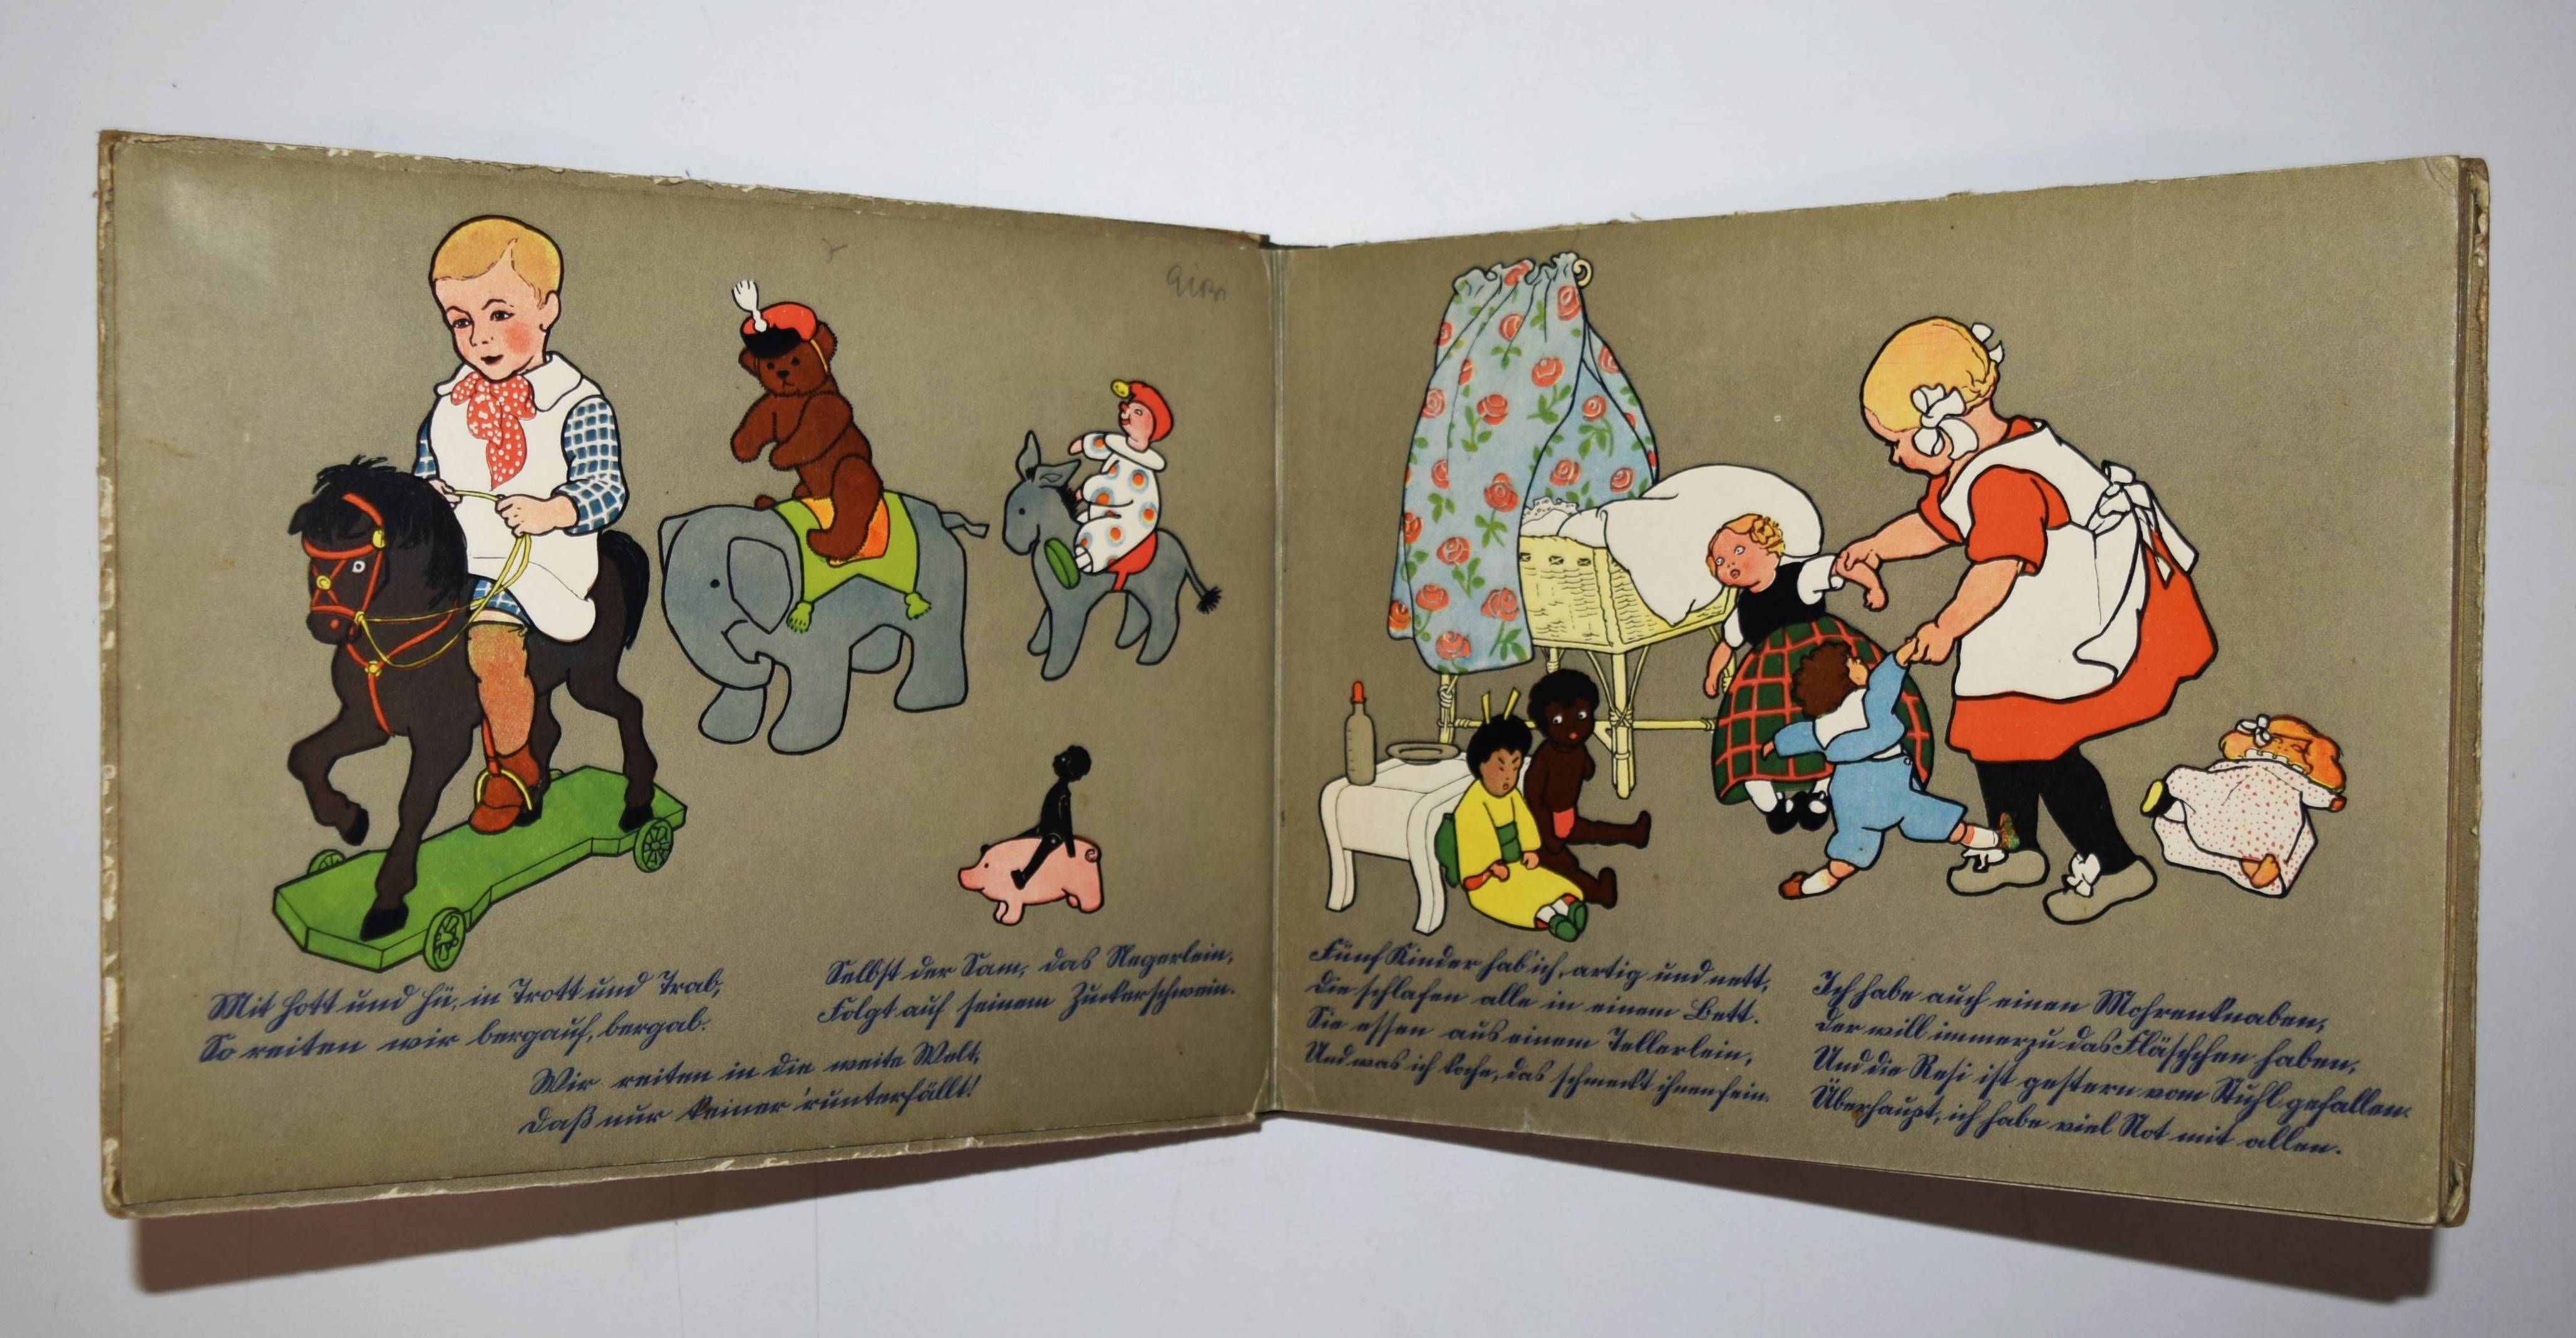 Mit hott und hü, in Trott und Trab,
So reiten wir bergauf, bergab.
Selbst der Sam, das Negerlein,
Folgt auf seinem Zuckerschwein.
Wir reiten in die weite Welt,
Daß nur keiner 'runterfällt!
Fünf Kinder hab' ich, artig und nett,
Die schlafen alle in einem Bett.
Sie essen aus einem Tellerlein,
Und was ich koche, das schmeckt ihnen fein.
Ich habe auch einen Mohrenknaben,
Der will immerzu das Fläschchen haben,
Und die Resi ist gestern vom Stuhl gefallen.
Überhaupt, ich habe viel Not mit allen.